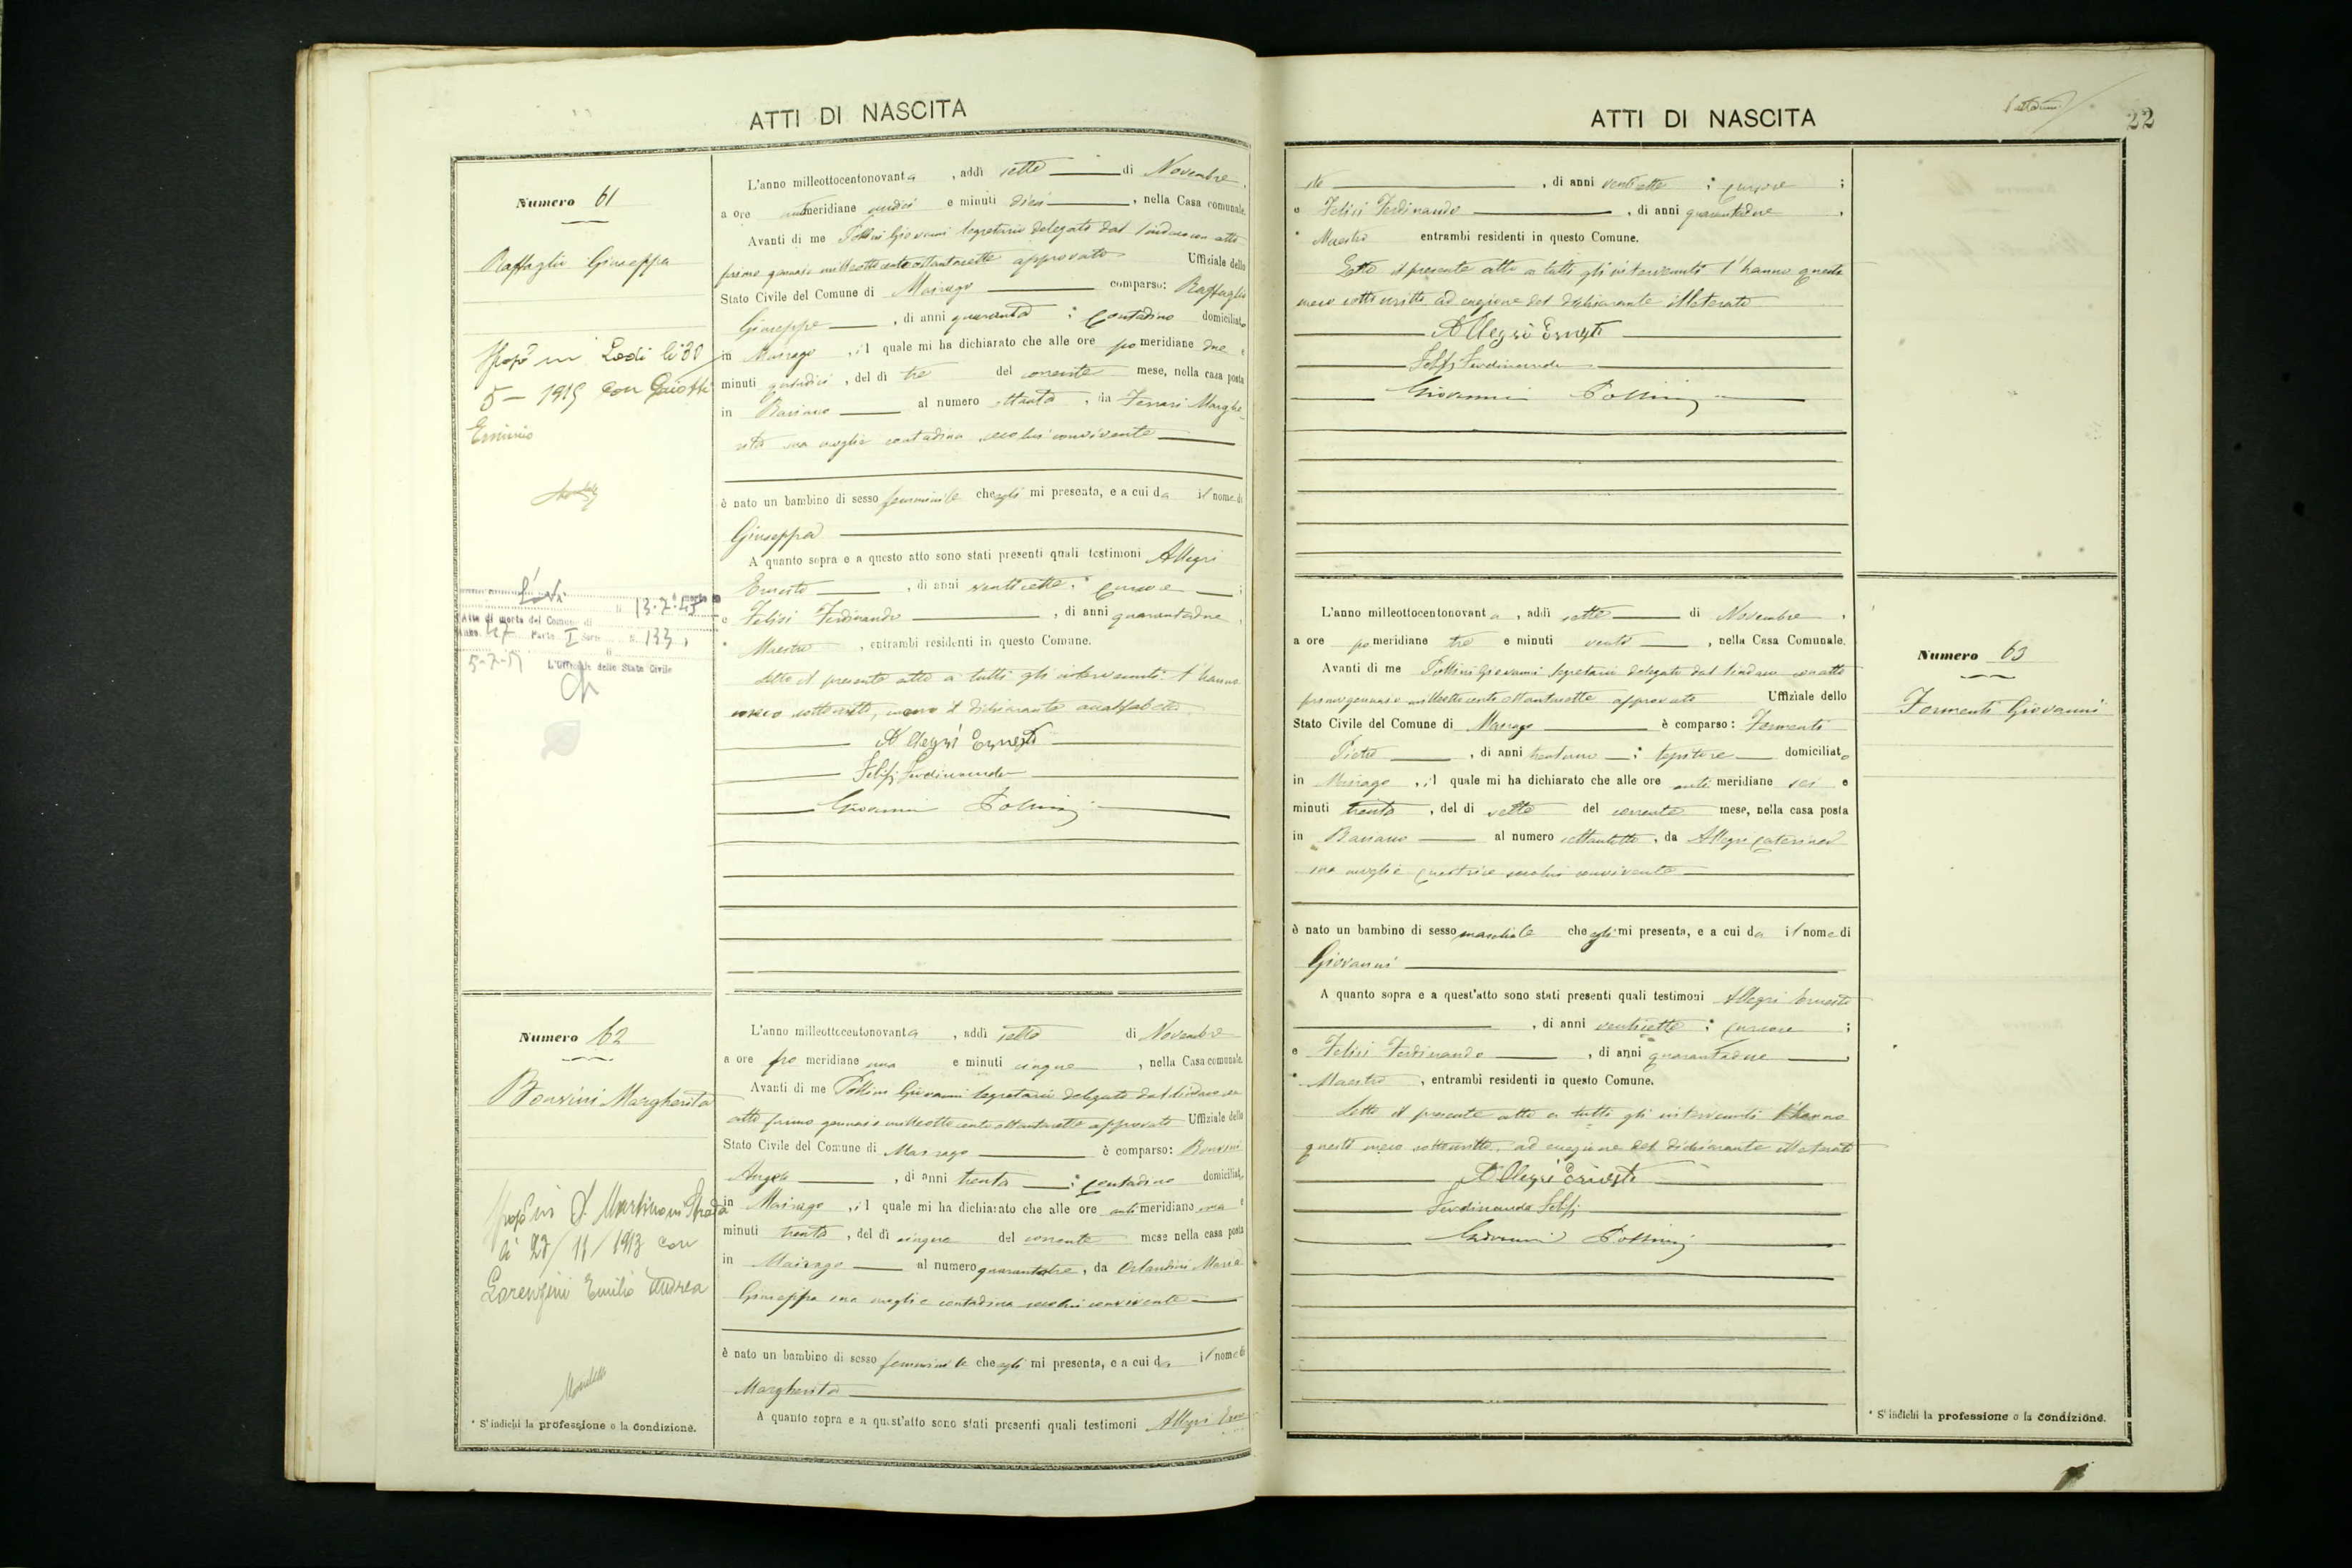 ATTI DI NASCITA
Numero 61
Raffaglio Giuseppa
Sposò in Lodi li 30
5 - 1915 con
Erminio
Lodi li 13.2.45
Atto di morte del Comune di
Anno 47 Parte I Serie N. 133
L'Ufficiale dello Stato Civile
L'anno milleottocentonovanta, addì sette di Novembre,
a ore antimeridiane undici e minuti dieci, nella Casa comunale.
Avanti di me Pollini Giovanni Segretario delegato dal Sindaco con atto
primo gennaio milleottocentoottantasette approvato Uffiziale dello
Stato Civile del Comune di Mairago comparso: Raffaglio
Giuseppe, di anni quaranta; contadino domiciliato
in Mairago, il quale mi ha dichiarato che alle ore pomeridiane due e
minuti quindici, del dì tre del corrente mese, nella casa posta
in Basiano al numero ottanta, da Ferrari Marghe-
rita sua moglie contadina seco lui convivente
è nato un bambino di sesso femminile che egli mi presenta, e a cui da il nome di
Giuseppa
A quanto sopra e a questo atto sono stati presenti quali testimoni Allegri
Ernesto, di anni ventisette; cursore;
e Felisi Ferdinando, di anni quarantadue,
* Maestro, entrambi residenti in questo Comune.
Letto il presente atto a tutti gli intervenuti l'hanno
meco sottoscritto, meno il dichiarante analfabeta
Allegri Ernesto
Felisi Ferdinando
Giovanni Pollini
Numero 62
Bonvini Margherita
Sposò in S. Martino in Strada
li 27/11/1913 con
Lorenzini Emilio Andrea
* S'indichi la professione o la condizione.
L'anno milleottocentonovanta, addì sette di Novembre
a ore pomeridiane una e minuti cinque, nella Casa comunale.
Avanti di me Pollini Giovanni Segretario delegato dal Sindaco con
atto primo gennaio milleottocentoottantasette approvato Uffiziale dello
Stato Civile del Comune di Mairago è comparso: Bonvini
Angelo, di anni trenta; contadino domiciliato
in Mairago, il quale mi ha dichiarato che alle ore antimeridiane una e
minuti trenta, del dì cinque del corrente mese nella casa posta
in Mairago al numero quarantatre, da Orlandini Maria
Giuseppa sua moglie contadina seco lui convivente
è nato un bambino di sesso femminile che egli mi presenta, e a cui da il nome di
Margherita
A quanto sopra e a quest'atto sono stati presenti quali testimoni Allegri Erne
ATTI DI NASCITA
22
sto, di anni ventisette; cursore;
e Felisi Ferdinando, di anni quarantadue,
* Maestro entrambi residenti in questo Comune.
Letto il presente atto a tutti gli intervenuti l'hanno questi
meco sottoscritto ad eccezione del dichiarante illetterato
Allegri Ernesto
Felisi Ferdinando
Giovanni Pollini
L'anno milleottocentonovanta, addì sette di Novembre,
a ore pomeridiane tre e minuti venti, nella Casa Comunale.
Avanti di me Pollini Giovanni Segretario delegato dal Sindaco con atto
primo gennaio milleottocentoottantasette approvato Uffiziale dello
Stato Civile del Comune di Mairago è comparso: Formenti
Pietro, di anni trentuno; tessitore domiciliato
in Mairago, il quale mi ha dichiarato che alle ore antimeridiane sei e
minuti trenta, del dì sette del corrente mese, nella casa posta
in Basiano al numero settantotto, da Allegri Caterina
sua moglie cucitrice seco lui convivente
è nato un bambino di sesso maschile che egli mi presenta, e a cui da il nome di
Giovanni
A quanto sopra e a quest'atto sono stati presenti quali testimoni Allegri Ernesto
, di anni ventisette; cursore;
e Felisi Ferdinando, di anni quarantadue,
* Maestro, entrambi residenti in questo Comune.
Letto il presente atto a tutti gli intervenuti l'hanno
questi meco sottoscritto, ad eccezione del dichiarante illetterato
Allegri Ernesto
Ferdinando Felisi
Giovanni Pollini
Numero 63
Formenti Giovanni
* S'indichi la professione o la condizione.